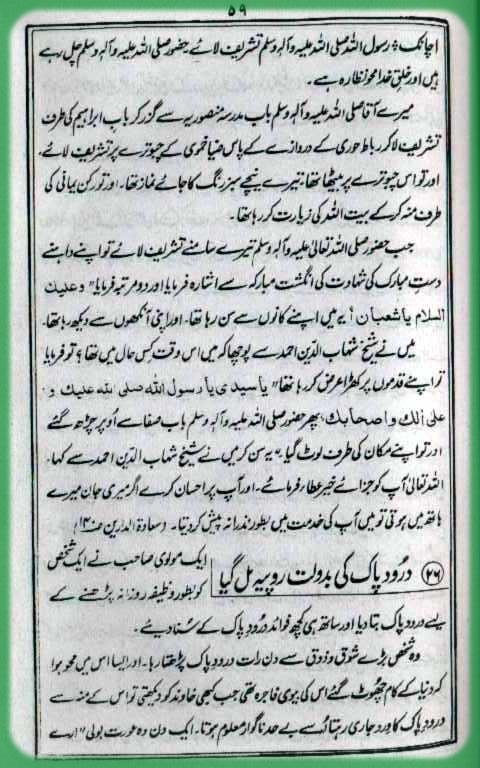 ۵۹
اچانک رسول اللہ صلی اللہ علیہ وآلہٖ وسلم تشریف لائے۔ حضور صلی اللہ علیہ وآلہٖ وسلم چل رہے
ہیں اور خلقِ خدا محوِ نظارہ ہے۔
میرے آقا صلی اللہ علیہ وآلہٖ وسلم باب مدرسہ منصوریہ سے گزر کر باب ابراہیم کی طرف
تشریف لا کر رباط حوری کے دروازے کے پاس ضیا خموی کے چبوترے پر تشریف لائے۔
اور تو اس چبوترے پر بیٹھا تھا۔ تیرے نیچے سبز رنگ کا جائے نماز تھا۔ اور تو رکن یمانی کی
طرف منہ کر کے بیت اللہ کی زیارت کر رہا تھا۔
جب حضور صلی اللہ تعالیٰ علیہ وآلہٖ وسلم تیرے سامنے تشریف لائے تو اپنے داہنے
دستِ مبارک کی شہادت کی انگشت مبارکہ سے اشارہ فرمایا اور دو مرتبہ فرمایا "وعلیک
السلام یا شعبان" یہ میں اپنے کانوں سے سن رہا تھا۔ اور اپنی آنکھوں سے دیکھ رہا تھا۔
میں نے شیخ شہاب الدین احمد سے پوچھا کہ میں اس وقت کس حال میں تھا؟ تو فرمایا
تو اپنے قدموں پر کھڑا عرض کر رہا تھا "یا سیدی یا رسول اللہ صلی اللہ علیک و
علی الک واصحابک" پھر حضور صلی اللہ علیہ وآلہٖ وسلم باب صفا سے اوپر چڑھ گئے
اور تو اپنے مکان کی طرف لوٹ گیا۔ یہ سن کر میں نے شیخ شہاب الدین احمد سے کہا۔
اللہ تعالیٰ آپ کو جزائے خیر عطاء فرمائے۔ اور آپ پر احسان کرے اگر میری جان میرے
ہاتھ میں ہوتی تو میں آپ کی خدمت میں بطور نذرانہ پیش کر دیتا۔ (سعادۃ الدارین
۲۶ درود پاک کی بدولت روپیہ مل گیا
ایک مولوی صاحب نے ایک شخص
کو بطور وظیفہ روزانہ پڑھنے کے
لیے درود پاک بتا دیا اور ساتھ ہی کچھ فوائد درود پاک کے سنا دیئے۔
وہ شخص بڑے شوق و ذوق سے دن رات درود پاک پڑھتا رہا۔ اور ایسا اس میں محو ہوا
کہ دنیا کے کام چھوٹ گئے اس کی بیوی فاجرہ تھی جب کبھی خاوند کو دیکھتی تو اس کے منہ سے
درود پاک کا ورد جاری رہتا اُسے بے حد ناگوار معلوم ہوتا۔ ایک دن وہ عورت بولی "ارے